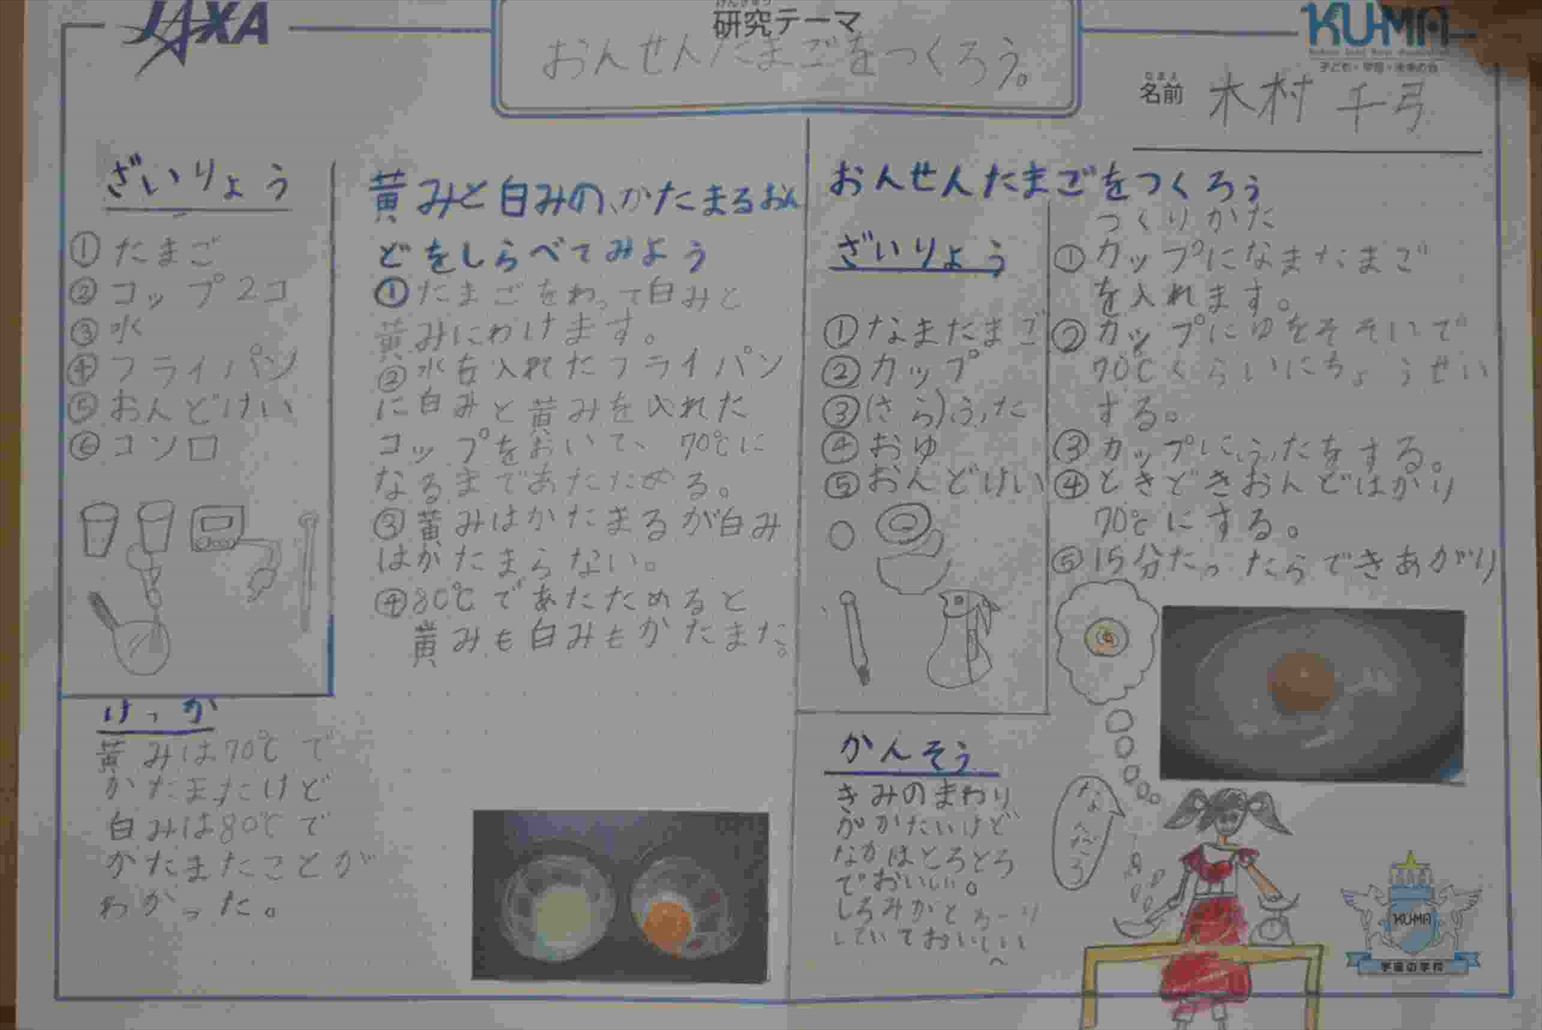 JAXA
けんきゅう
研究テーマ
おんせんたまごをつくろう。
KU-MA
子ども・宇宙・未来の会
なまえ
名前 木村 千弓
ざいりょう
①たまご
②コップ2コ
③水
④フライパン
⑤おんどけい
⑥コンロ
黄みと白みの、かたまるおん
どをしらべてみよう
①たまごをわって白みと
黄みにわけます。
②水を入れたフライパン
に白みと黄みを入れた
コップをおいて、70℃に
なるまであたためる。
③黄みはかたまるが白み
はかたまらない。
④80℃であたためると
黄みも白みもかたまた。
けっか
黄みは70℃で
かたまたけど
白みは80℃で
かたまたことが
わかった。
おんせんたまごをつくろう
ざいりょう
①なまたまご
②カップ
③(さら)ふた
④おゆ
⑤おんどけい
つくりかた
①カップになまたまご
を入れます。
②カップにゆをそそいで
70℃くらいにちょうせい
する。
③カップにふたをする。
④ときどきおんどはかり
70℃にする。
⑤15分たったらできあがり
かんそう
きみのまわり
がかたいけど
なかはとろとろ
でおいしい。
しろみがとろーり
していておいしい
なんだろう
KU-MA
宇宙の学校